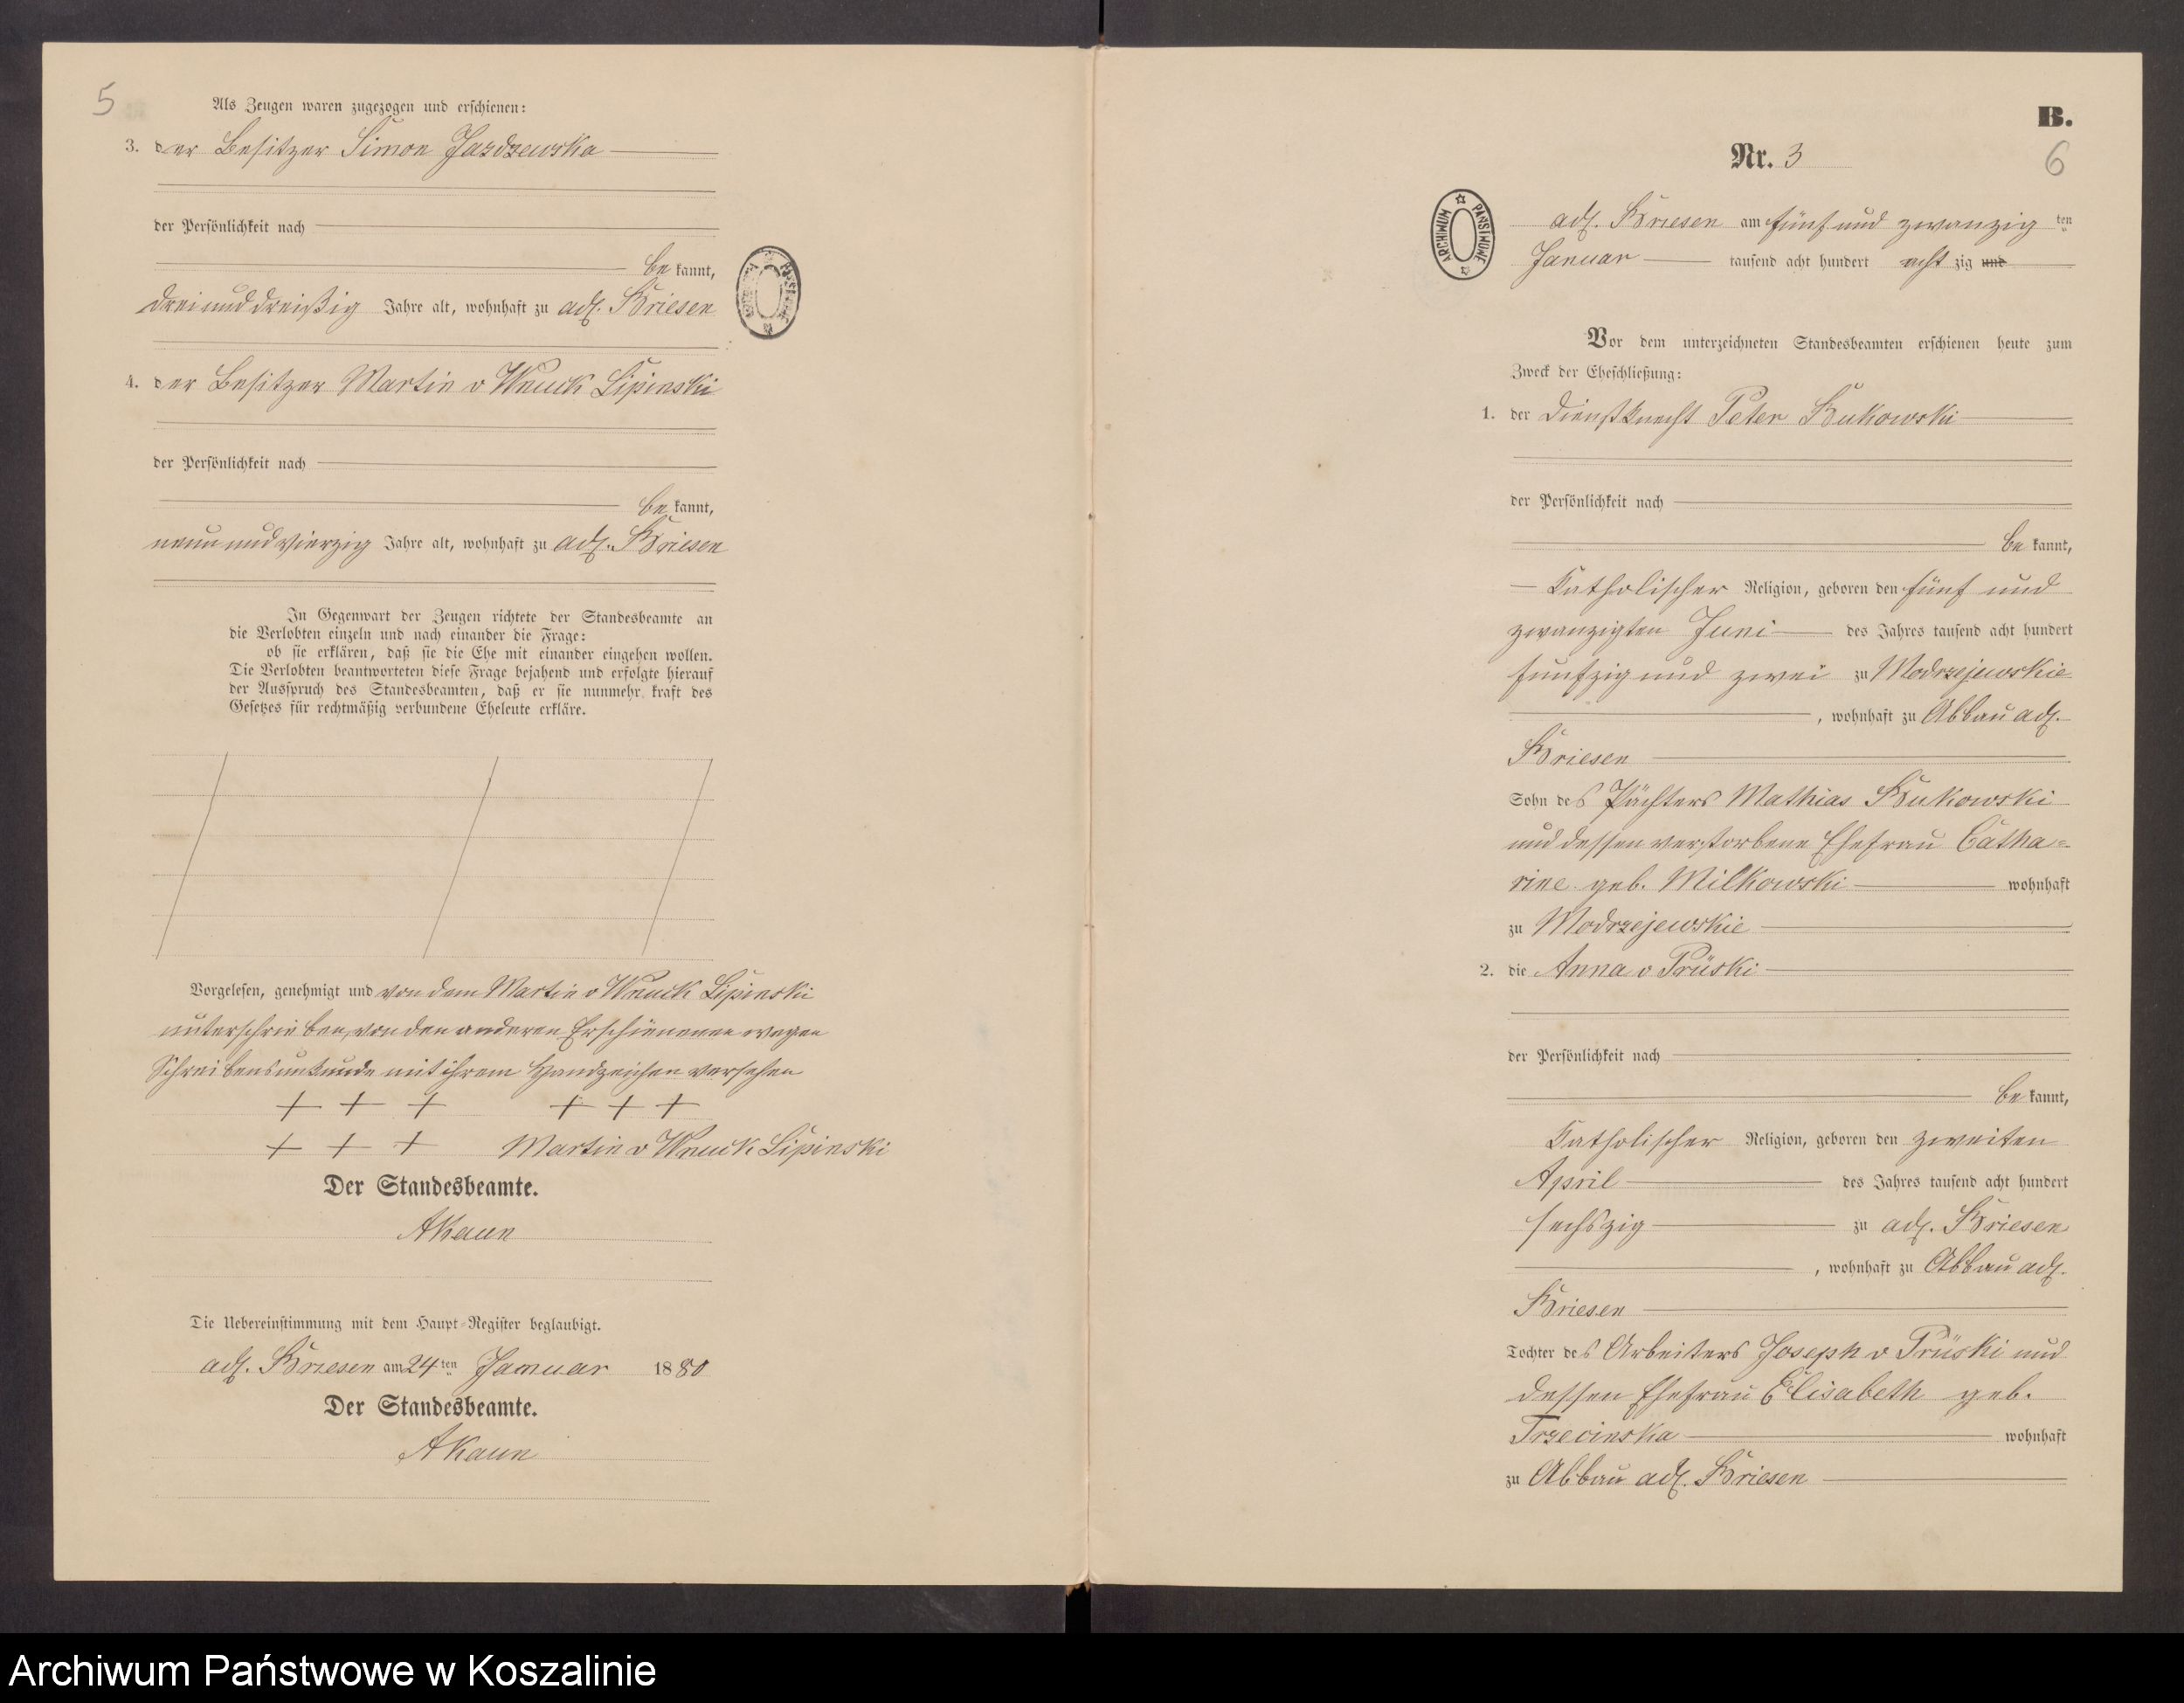 5
Als Zeugen waren zugezogen und erschienen:
3. der Besitzer Simon Jazdzewska
der Persönlichkeit nach
bekannt,
dreiunddreißig Jahre alt, wohnhaft zu adl. Briesen
4. der Besitzer Martin v Wnuck Lipinski
der Persönlichkeit nach
bekannt,
neunundvierzig Jahre alt, wohnhaft zu adl. Briesen
In Gegenwart der Zeugen richtete der Standesbeamte an
die Verlobten einzeln und nach einander die Frage:
ob sie erklären, daß sie die Ehe mit einander eingehen wollen.
Die Verlobten beantworteten diese Frage bejahend und erfolgte hierauf
der Ausspruch des Standesbeamten, daß er sie nunmehr kraft des
Gesetzes für rechtmäßig verbundene Eheleute erkläre.
Vorgelesen, genehmigt und von dem Martin v Wnuck Lipinski
unterschrieben, von den anderen Erschienenen wegen
Schreibensunkunde mit ihrem Handzeichen versehen
+ + + + + +
+ + + Martin v Wnuck Lipinski
Der Standesbeamte.
AKaun
Die Uebereinstimmung mit dem Haupt-Register beglaubigt.
adl. Briesen am 24ten Januar 1880
Der Standesbeamte.
AKaun
B.
Nr. 3
6
ARCHIWUM PAŃSTWOWE
adl. Briesen am fünf und zwanzigten
Januar tausend acht hundert achtzig und
Vor dem unterzeichneten Standesbeamten erschienen heute zum
Zweck der Eheschließung:
1. der Dienstknecht Peter Bukowski
der Persönlichkeit nach
bekannt,
Katholischer Religion, geboren den fünf und
zwanzigten Juni des Jahres tausend acht hundert
funfzig und zwei zu Modrzejewskie
, wohnhaft zu Abbau adl.
Briesen
Sohn des Pächters Mathias Bukowski
und dessen verstorbene Ehefrau Catha=
rine geb. Milkowski wohnhaft
zu Modrzejewskie
2. die Anna v Prüski
der Persönlichkeit nach
bekannt,
Katholischer Religion, geboren den zweiten
April des Jahres tausend acht hundert
sechszig zu adl. Briesen
, wohnhaft zu Abbau adl.
Briesen
Tochter des Arbeiters Joseph v Prüski und
dessen Ehefrau Elisabeth geb.
Trzecinska wohnhaft
zu Abbau adl. Briesen
Archiwum Państwowe w Koszalinie